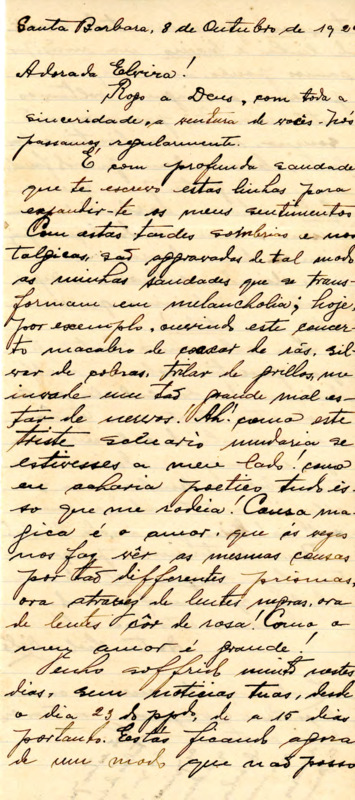 Santa Barbara, 8 de Outubro de 192
Adorada Elvira!
Rogo a Deus, com toda a
sinceridade, a ventura de vocês. Nós
passamos regularmente.
É com profunda saudade
que te escrevo estas linhas para
expandir-te os meus sentimentos
Com estas tardes sombrias e nos
talgicas, são aggravadas de tal modo
as minhas saudades que se trans-
formam em melancholia; hoje,
por exemplo, ouvindo este concer-
to macabro de coaxar de rãs, sil-
var de cobras, trilar de grillos, me
invade um tão grande mal es-
tar de nervos. Ah! como este
triste scenario mudaria se
estivesses a meu lado! como
eu acharia poetico tudo is-
so que me rodeia! Cousa ma-
gica é o amor, que ás vezes
nos faz vêr as mesmas cousas
por tão differentes prismas,
ora atravez de lentes negras, ora
de lentes côr de rosa! Como o
meu amor é grande!
Tenho soffrido muito nestes
dias, sem noticias tuas, desde
o dia 23 do ppdo, de a 15 dias
portanto. Estás ficando agora
de um modo que não posso